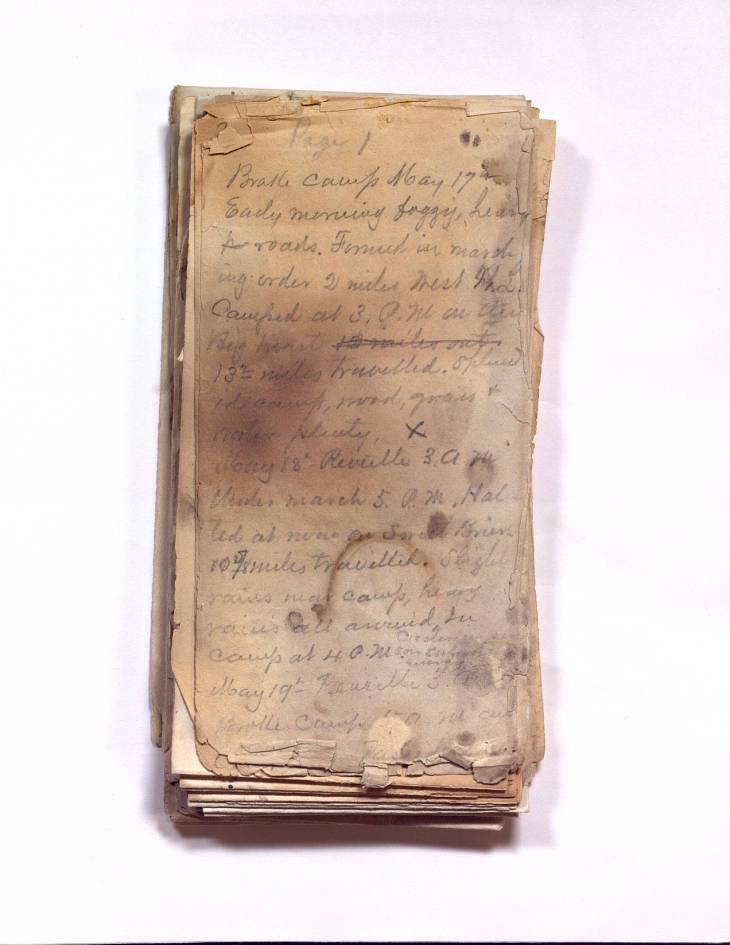 Page 1
Broke camp May 17th
Early morning foggy, heavy
roads. Formed in march
ing order 2 miles West
Camped at 3. P.M on the
Big Heart 13 miles out.
13 2/5 miles travelled. Splend
id camp, wood, grass &
water plenty. X
May 18th Reveille 3 A M
Under march 5. P.M. Hal
ted at noon on Sweet Briar
10 miles travelled. Slight
rains near camp, heavy
rains all around. In
camp at 4 P.M.
May 19th Reveille 3
Broke Camp 5 A M